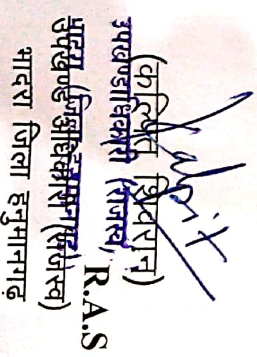 (कल्पित शिवरान) R.A.S
उपखण्डाधिकारी (राजस्व)
उपखण्ड अधिकारी (राजस्व)
भादरा जिला हनुमानगढ़